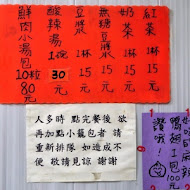 紅茶1杯15元
奶茶1杯15元
無糖豆漿1杯15元
豆漿1杯15元
酸辣湯1碗30元
鮮肉小湯包10粒80元
人多時 點完餐後 欲
再加點小籠包者 請
重新排隊 如造成不
便 敬請見諒 謝謝